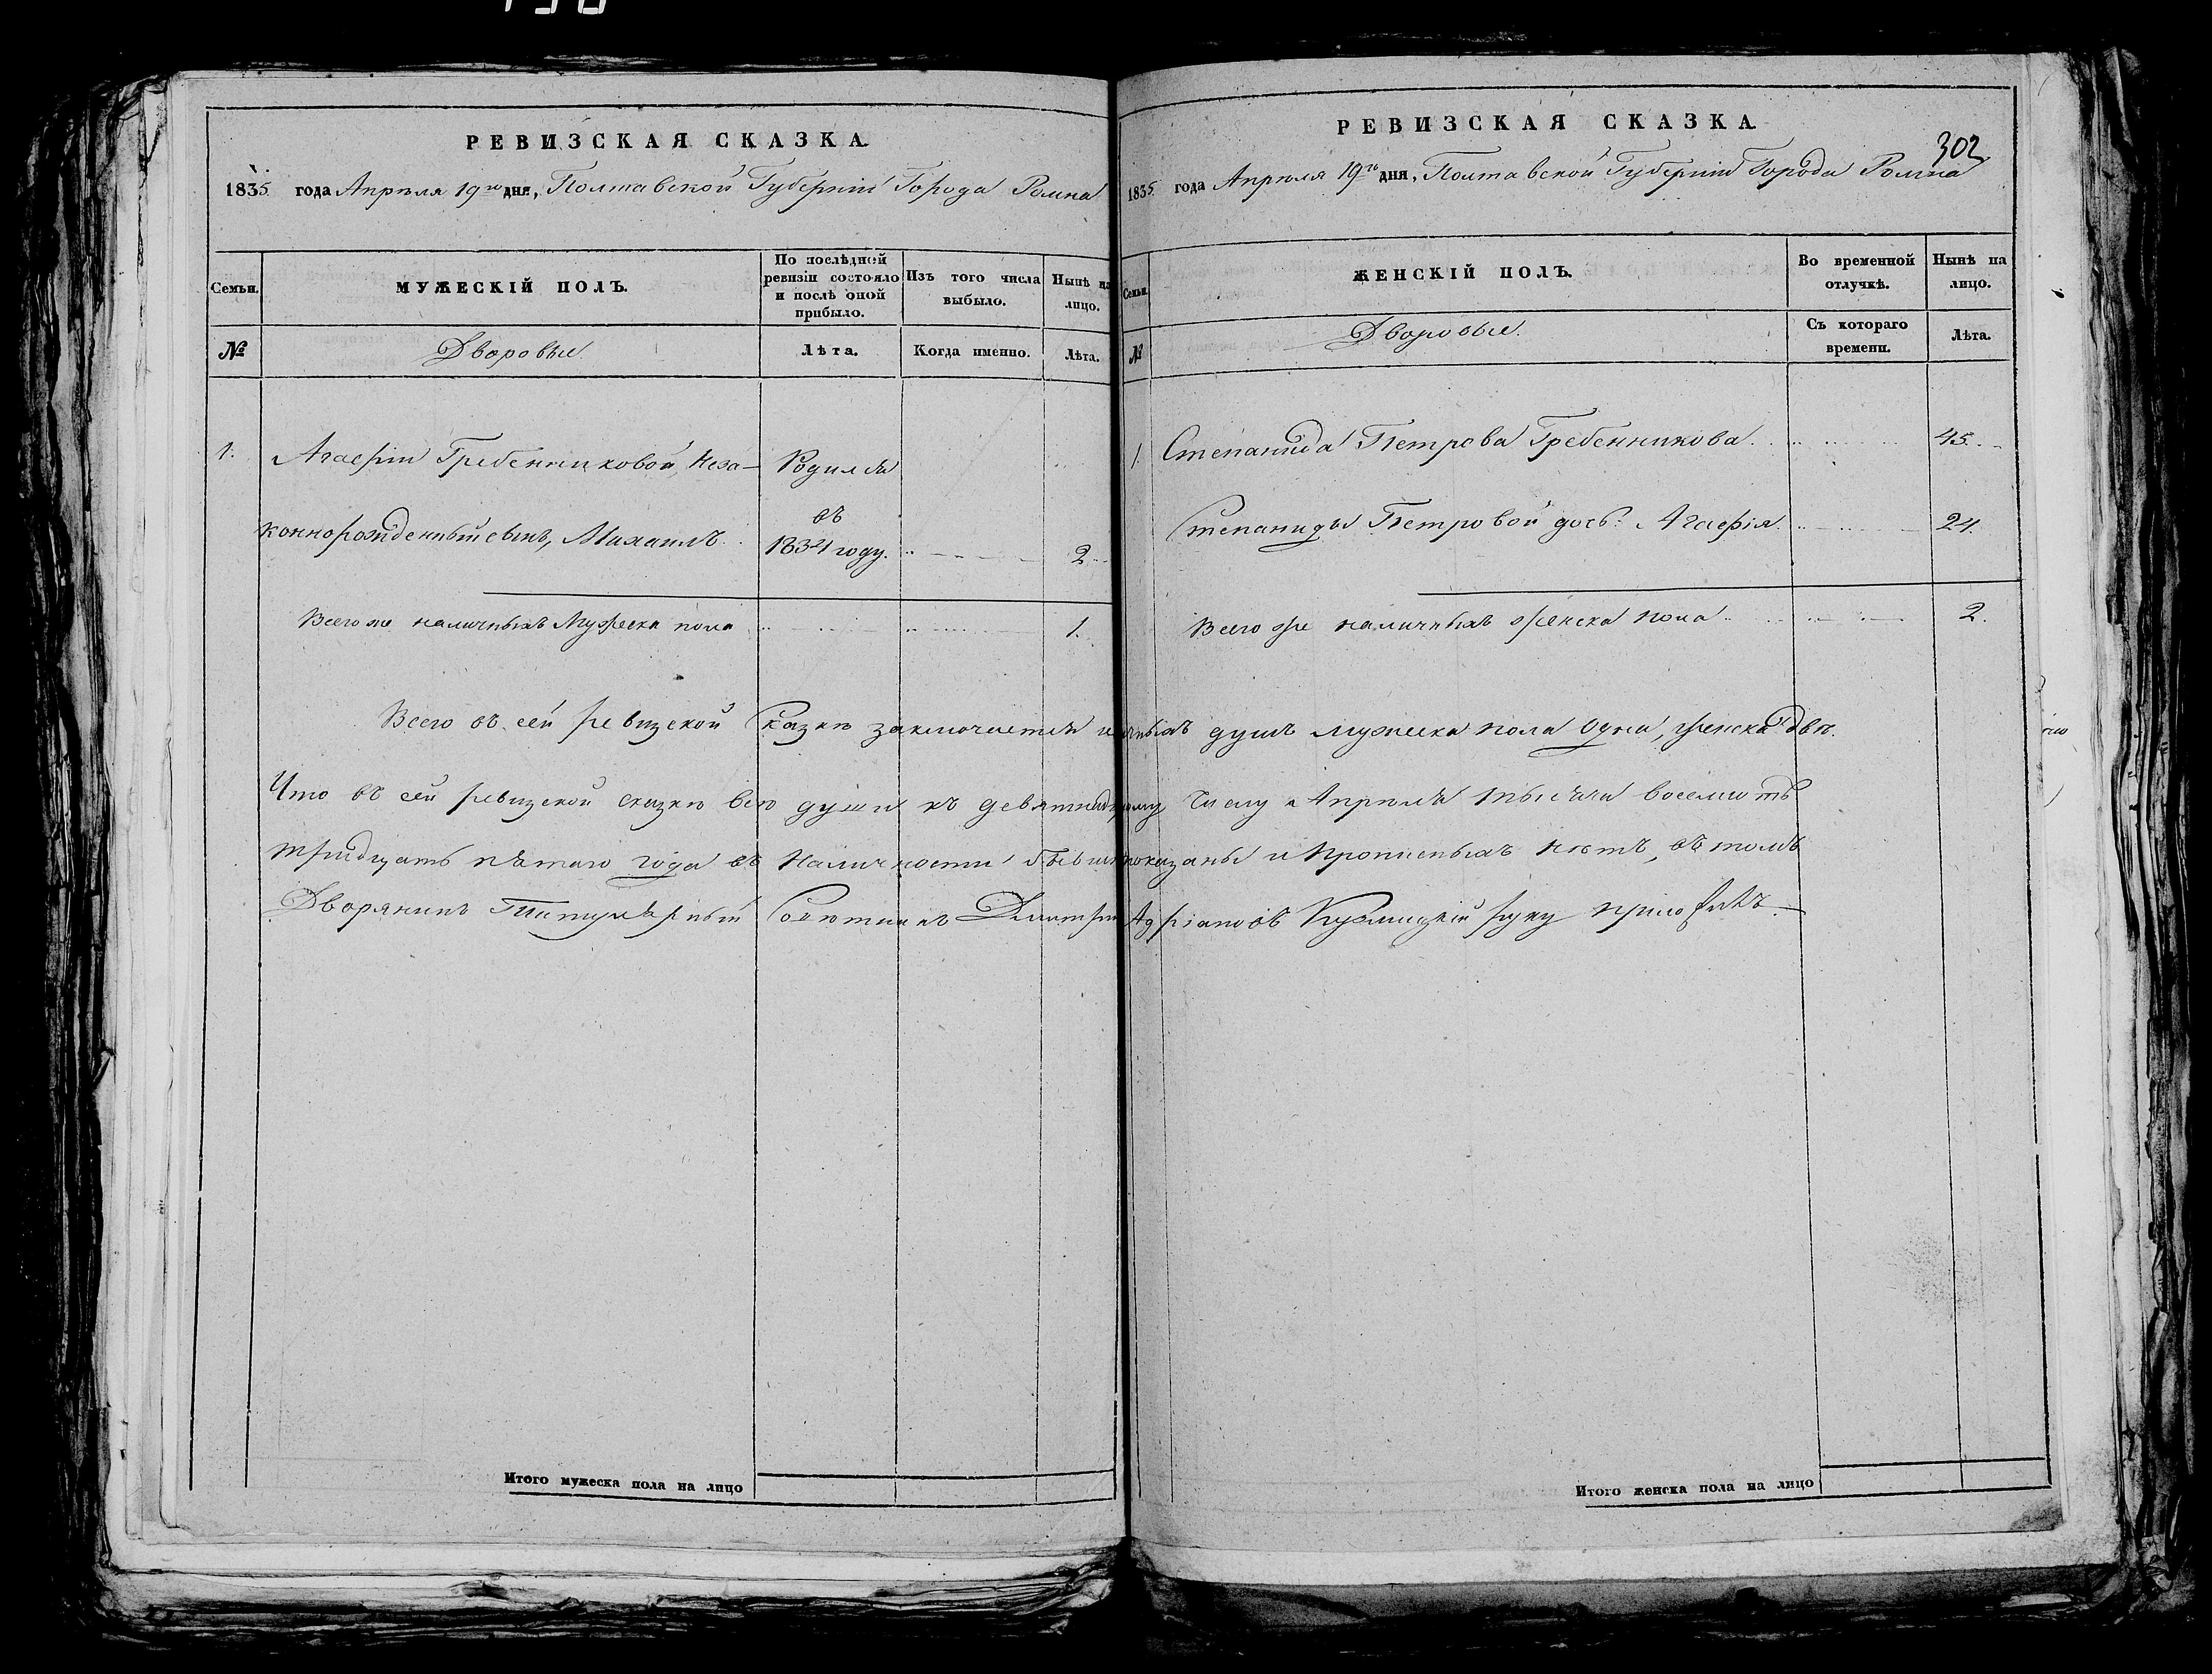 РЕВИЗСКАЯ СКАЗКА.
1835. года Апрѣля 19го дня, Полтавской Губерніи Города Ромна
Семьи.
МУЖЕСКІЙ ПОЛЪ.
По послѣдней ревизіи состояло и послѣ оной прибыло.
Изъ того числа выбыло.
Нынѣ на лицо.
№
Дворовые.
Лѣта.
Когда именно.
Лѣта.
1. Агафіи Гребенниковой, Неза- Родился
въ
коннорожденный сынъ, Михаилъ. 1834 году. 2
Всего же наличныхъ Мужеска пола 1.
РЕВИЗСКАЯ СКАЗКА.
302
1835. года Апрѣля 19го дня, Полтавской Губерніи Города Ромна
Семьи.
ЖЕНСКІЙ ПОЛЪ.
Во временной отлучкѣ.
Нынѣ на лицо.
№
Дворовые.
Съ котораго времени.
Лѣта.
1. Степанида Петрова Гребенникова. 45.
Степаниды Петровой дочь: Агафія. 24.
Всего же наличныхъ женска пола 2.
Всего въ сей ревизской Сказкѣ заключается душъ мужеска пола одна, женска двѣ.
Что въ сей ревизской сказкѣ всѣ души къ девятнадцатому числу Апрѣля тысяча восемь сотъ
тридцать пятаго года въ Наличности бывши показаны и прописныхъ нѣтъ, въ томъ
Дворянинъ Титулярный Совѣтникъ Дмитрій Адріановъ руку приложилъ.
Итого мужеска пола на лицо
Итого женска пола на лицо